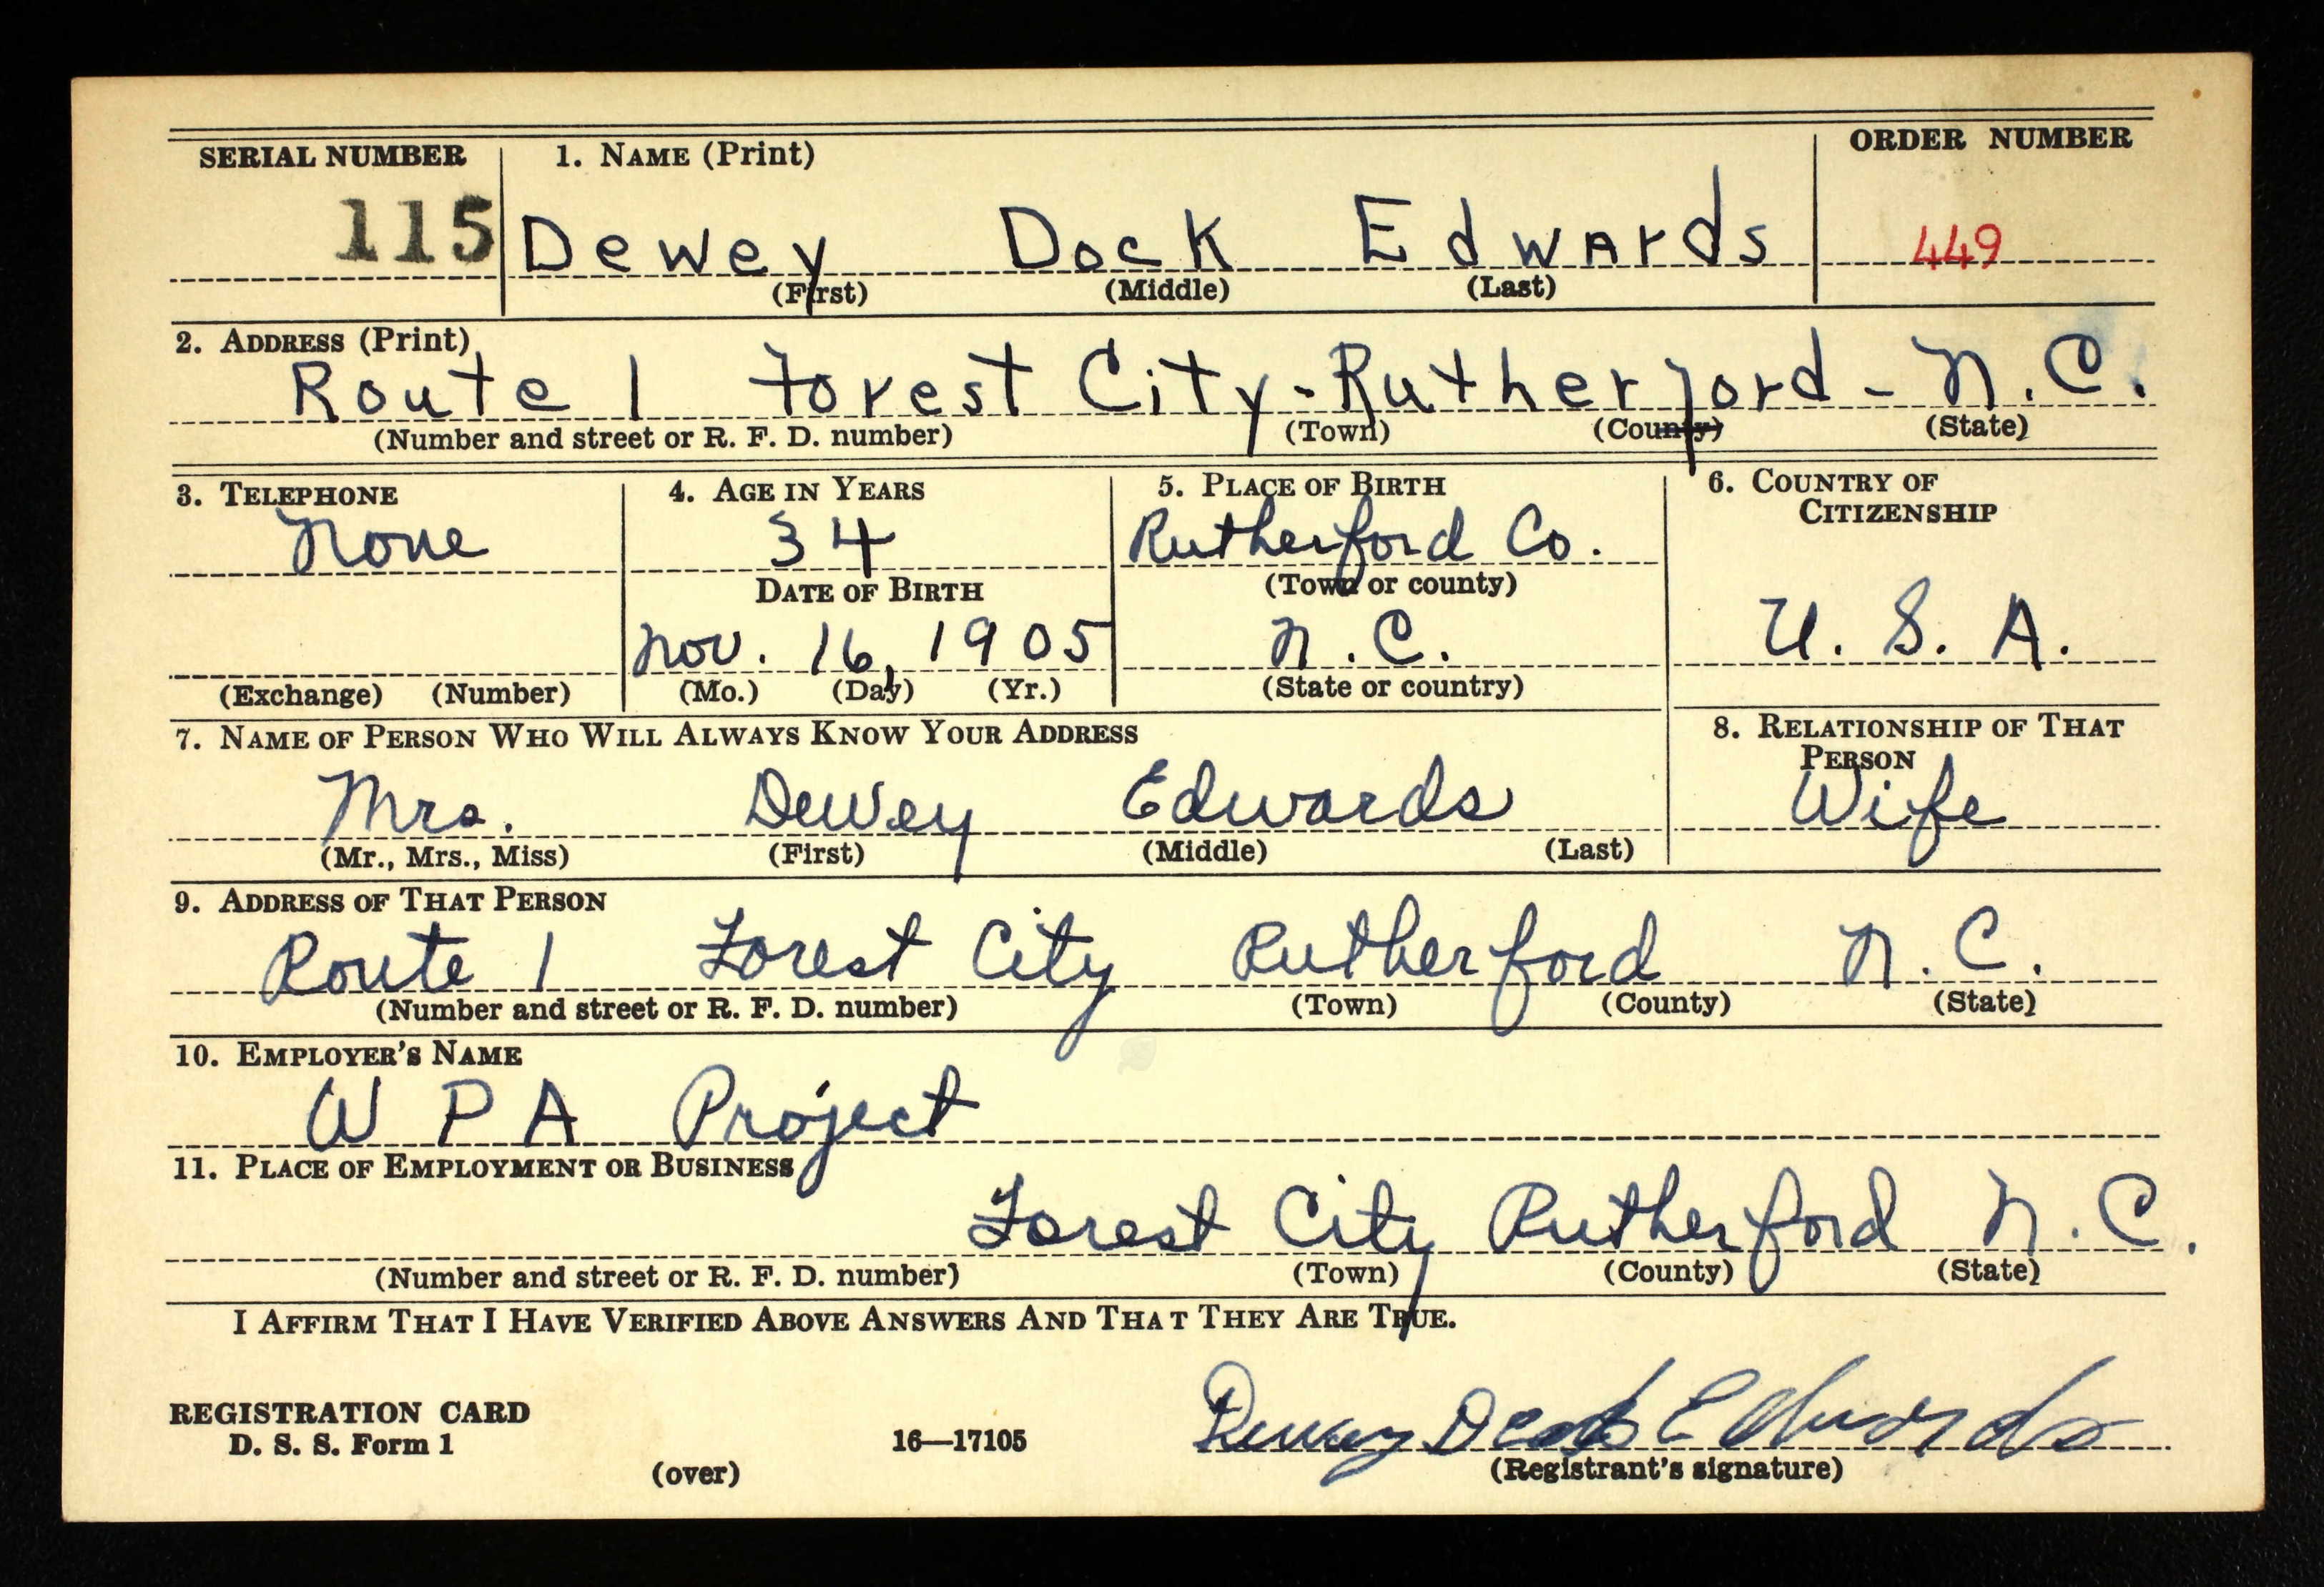 SERIAL NUMBER 1. NAME (Print) ORDER NUMBER
115 Dewey Dock Edwards 449
(First) (Middle) (Last)
2. ADDRESS (Print)
Route 1 Forest City - Rutherford - N.C.
(Number and street or R. F. D. number) (Town) (County) (State)
3. TELEPHONE 4. AGE IN YEARS 5. PLACE OF BIRTH 6. COUNTRY OF CITIZENSHIP
None 34 Rutherford Co.
DATE OF BIRTH (Town or county)
Nov. 16, 1905 N.C. U. S. A.
(Exchange) (Number) (Mo.) (Day) (Yr.) (State or country)
7. NAME OF PERSON WHO WILL ALWAYS KNOW YOUR ADDRESS 8. RELATIONSHIP OF THAT PERSON
Mrs. Dewey Edwards Wife
(Mr., Mrs., Miss) (First) (Middle) (Last)
9. ADDRESS OF THAT PERSON
Route 1 Forest City Rutherford N.C.
(Number and street or R. F. D. number) (Town) (County) (State)
10. EMPLOYER'S NAME
W P A Project
11. PLACE OF EMPLOYMENT OR BUSINESS
Forest City Rutherford N.C.
(Number and street or R. F. D. number) (Town) (County) (State)
I AFFIRM THAT I HAVE VERIFIED ABOVE ANSWERS AND THAT THEY ARE TRUE.
REGISTRATION CARD
D. S. S. Form 1 16—17105 Dewey Dock Edwards
(over) (Registrant's signature)